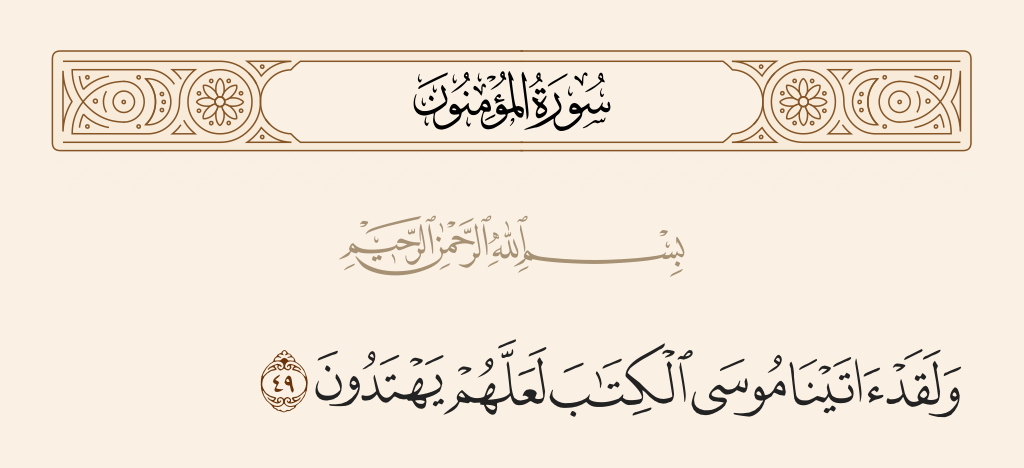 سُورَةُ الْمُؤْمِنُونَ
بِسْمِ ٱللَّهِ ٱلرَّحْمَٰنِ ٱلرَّحِيمِ
وَلَقَدْ ءَاتَيْنَا مُوسَى ٱلْكِتَٰبَ لَعَلَّهُمْ يَهْتَدُونَ ٤٩